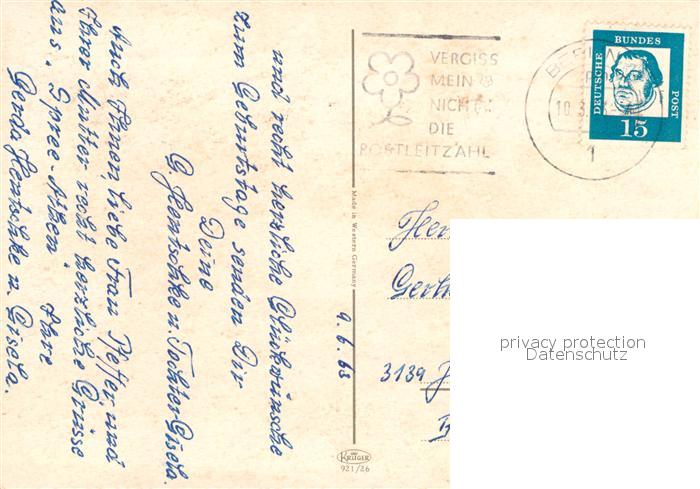 und recht herzliche Glückwünsche
zum Geburtstage senden Dir
Deine
G. Hentschke u. Tochter Gisela.
Auch Ihnen, liebe Frau Pfeffer, und
Ihrer Mutter recht herzliche Grüsse
aus „Spree-Athen"
Ihre
Gerda Hentschke u. Gisela.
9.6.63
Made in Western Germany
KRÜGER
921/26
VERGISS
MEIN
NICHT
DIE
POSTLEITZAHL
BERLIN
10.3.
1
DEUTSCHE
BUNDES
POST
15
3139
privacy protection
Datenschutz